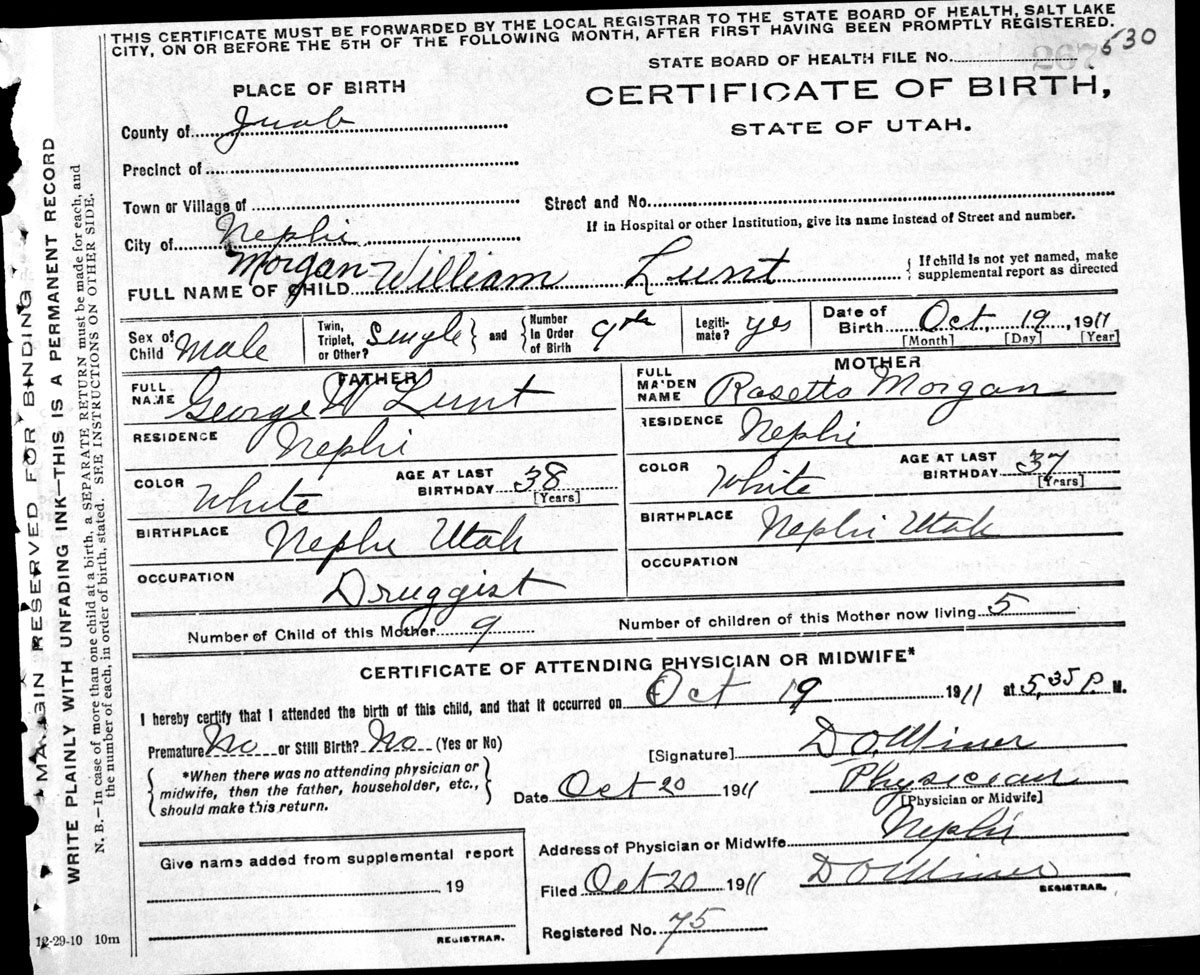 THIS CERTIFICATE MUST BE FORWARDED BY THE LOCAL REGISTRAR TO THE STATE BOARD OF HEALTH, SALT LAKE
CITY, ON OR BEFORE THE 5TH OF THE FOLLOWING MONTH, AFTER FIRST HAVING BEEN PROMPTLY REGISTERED.
STATE BOARD OF HEALTH FILE No. 530
PLACE OF BIRTH
CERTIFICATE OF BIRTH,
STATE OF UTAH.
County of Juab
Precinct of
Town or Village of
Street and No.
If in Hospital or other Institution, give its name instead of Street and number.
City of Nephi
FULL NAME OF CHILD Morgan William Lunt { If child is not yet named, make
supplemental report as directed
Sex of
Child Male
Twin,
Triplet,
or Other? Single } and { Number
In Order
of Birth 9th
Legiti-
mate? yes
Date of
Birth Oct. 19, 1911
[Month] [Day] [Year]
FATHER
FULL
NAME George W Lunt
RESIDENCE Nephi
COLOR White
AGE AT LAST
BIRTHDAY 38
[Years]
BIRTHPLACE Nephi Utah
OCCUPATION Druggist
MOTHER
FULL
MAIDEN
NAME Rosetta Morgan
RESIDENCE Nephi
COLOR White
AGE AT LAST
BIRTHDAY 37
[Years]
BIRTHPLACE Nephi Utah
OCCUPATION
Number of Child of this Mother 9
Number of children of this Mother now living 5
CERTIFICATE OF ATTENDING PHYSICIAN OR MIDWIFE*
I hereby certify that I attended the birth of this child, and that it occurred on Oct 19 1911 at 5,35 P M.
Premature No or Still Birth? No (Yes or No)
{ *When there was no attending physician or
midwife, then the father, householder, etc.,
should make this return. }
[Signature] D O. Miner
Date Oct 20 1911
Physician
[Physician or Midwife]
Address of Physician or Midwife Nephi
Give name added from supplemental report
19
REGISTRAR.
Filed Oct 20 1911 D O Miner
REGISTRAR.
Registered No. 75
12-29-10 10m
MARGIN RESERVED FOR BINDING
WRITE PLAINLY WITH UNFADING INK—THIS IS A PERMANENT RECORD
N. B.—In case of more than one child at a birth, a SEPARATE RETURN must be made for each, and
the number of each, in order of birth, stated. SEE INSTRUCTIONS ON OTHER SIDE.